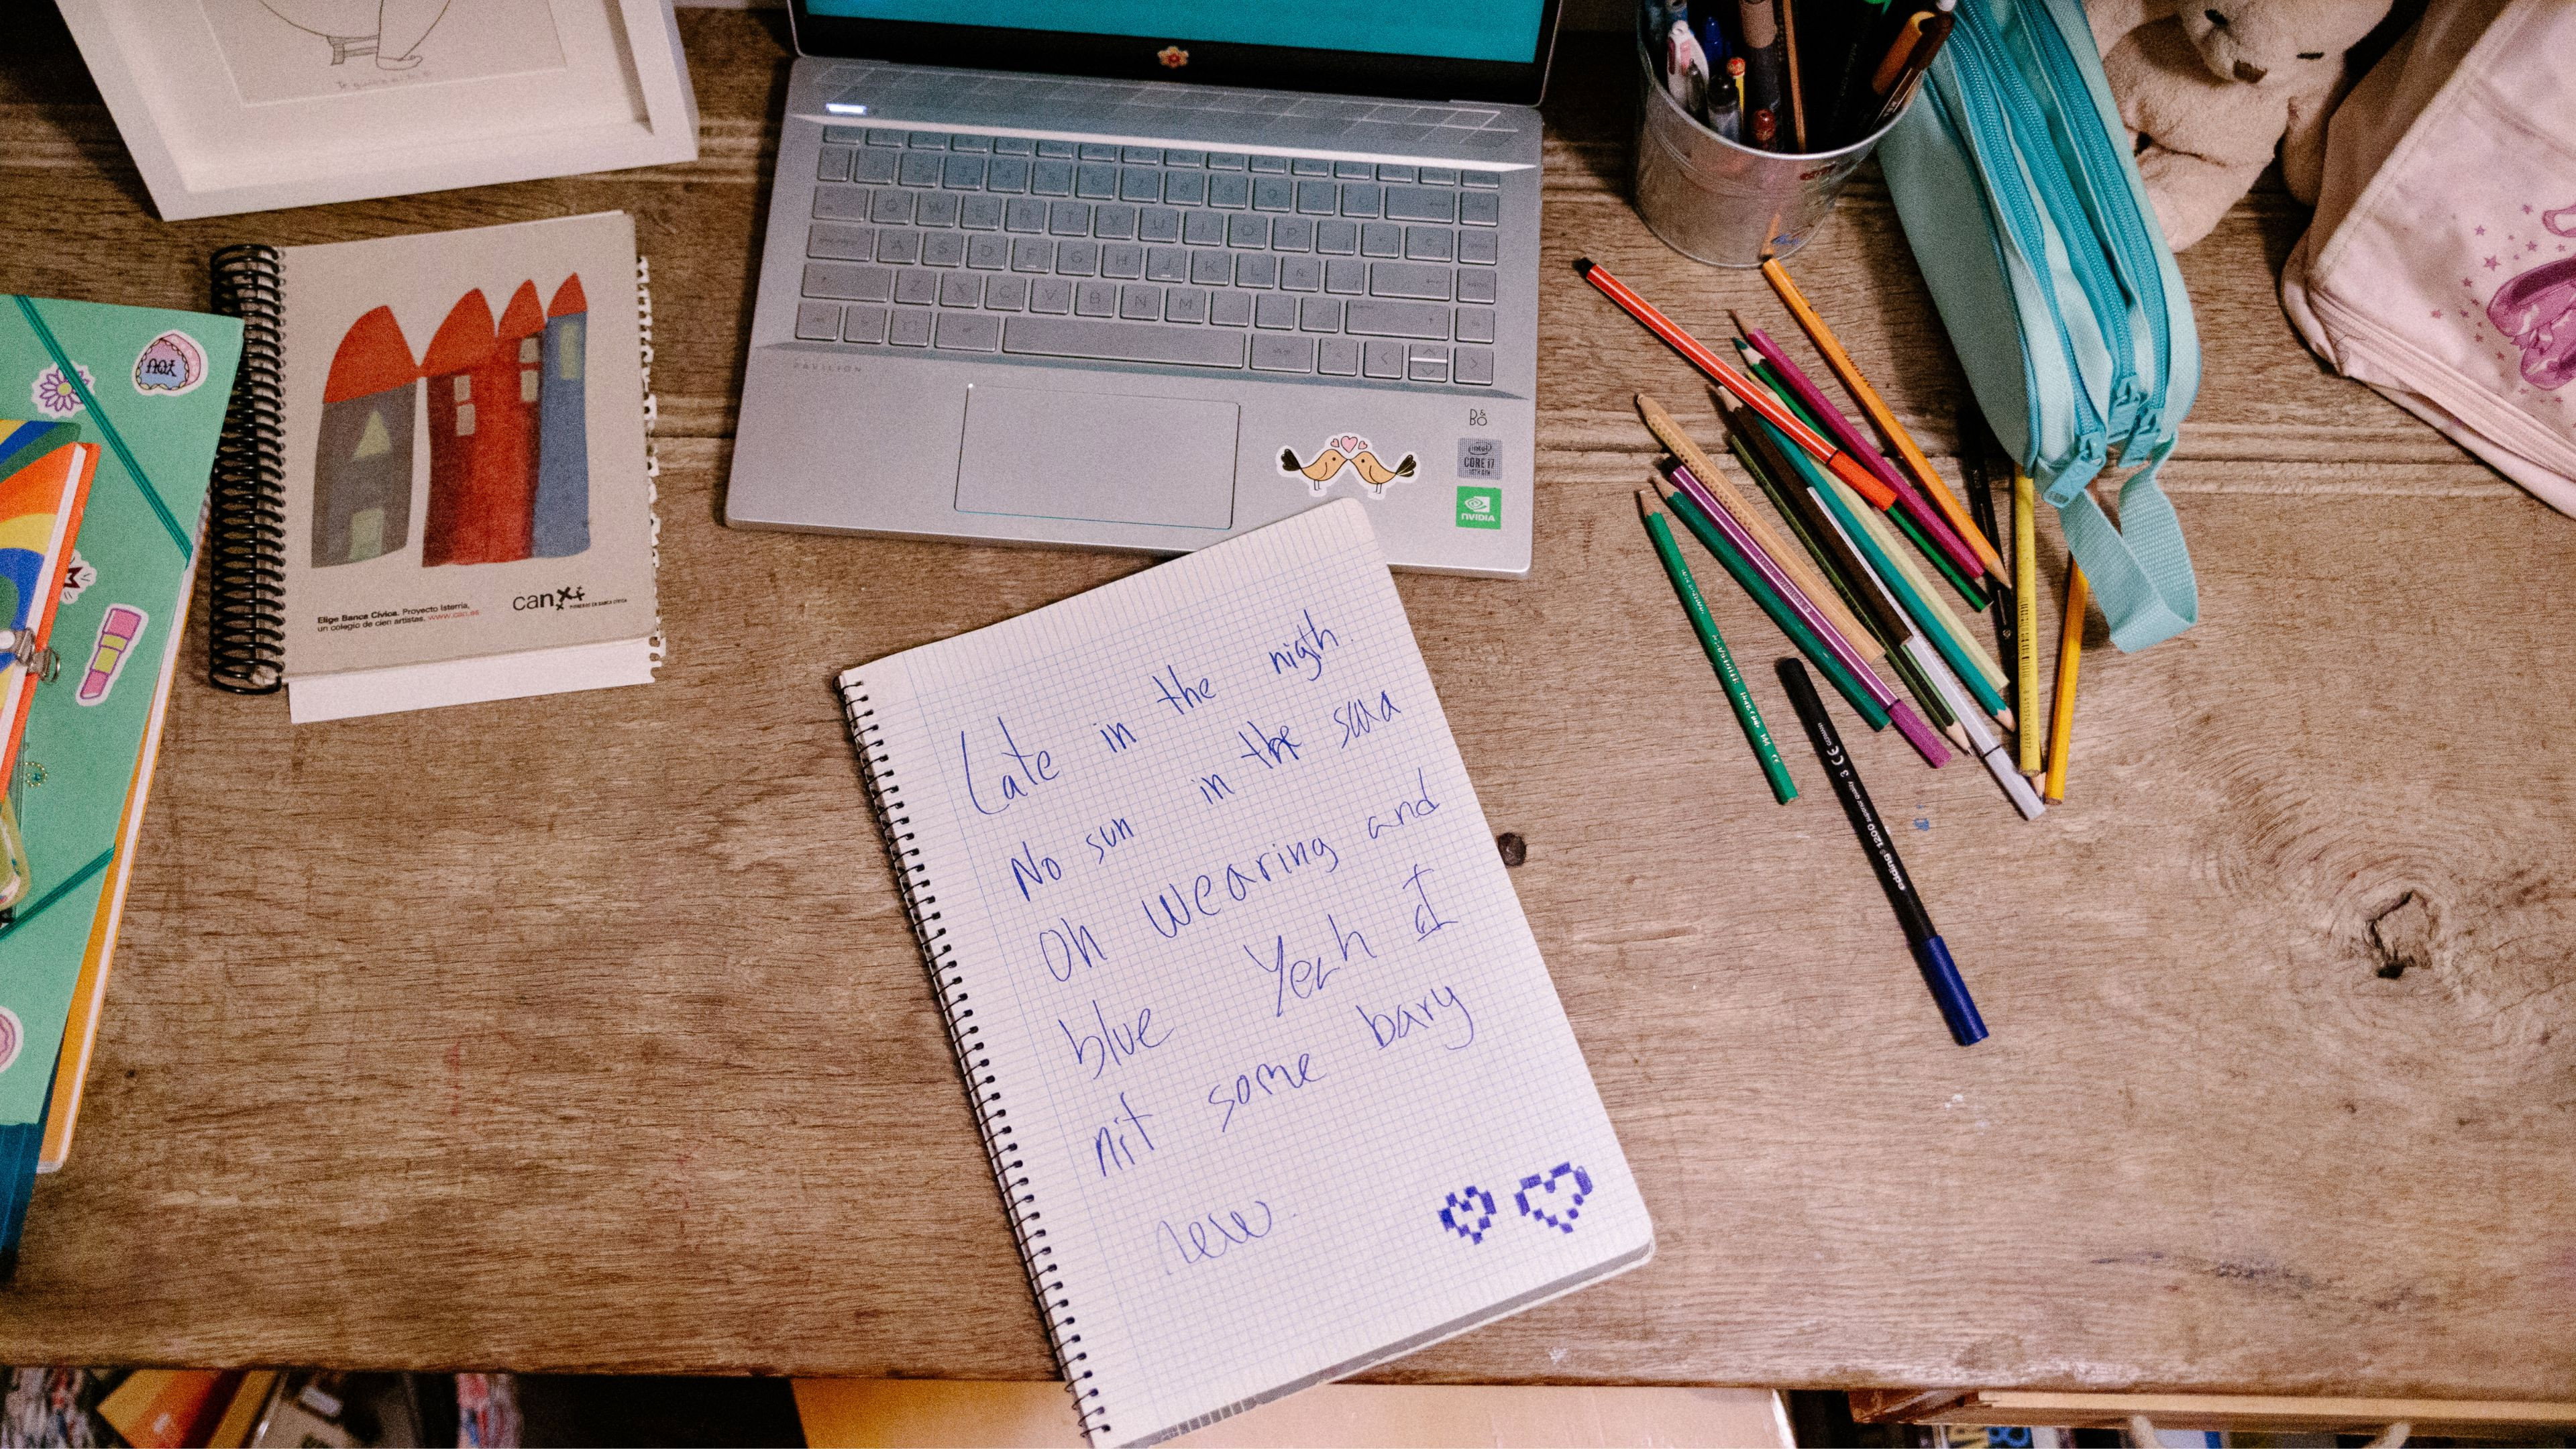 YOU
Elige Banca Cívica. Proyecto Isterria,
un colegio de cien artistas. www.can.es
can
PAVILION
Q W E R T Y U I O P
A S D F G H J K L Ñ
Z X C V B N M
B&O
intel
CORE i7
10TH GEN
NVIDIA
Late in the nigh.
No sun in the
oh wearing and
blue Yeah I
nit some bary
new.
edding 1200